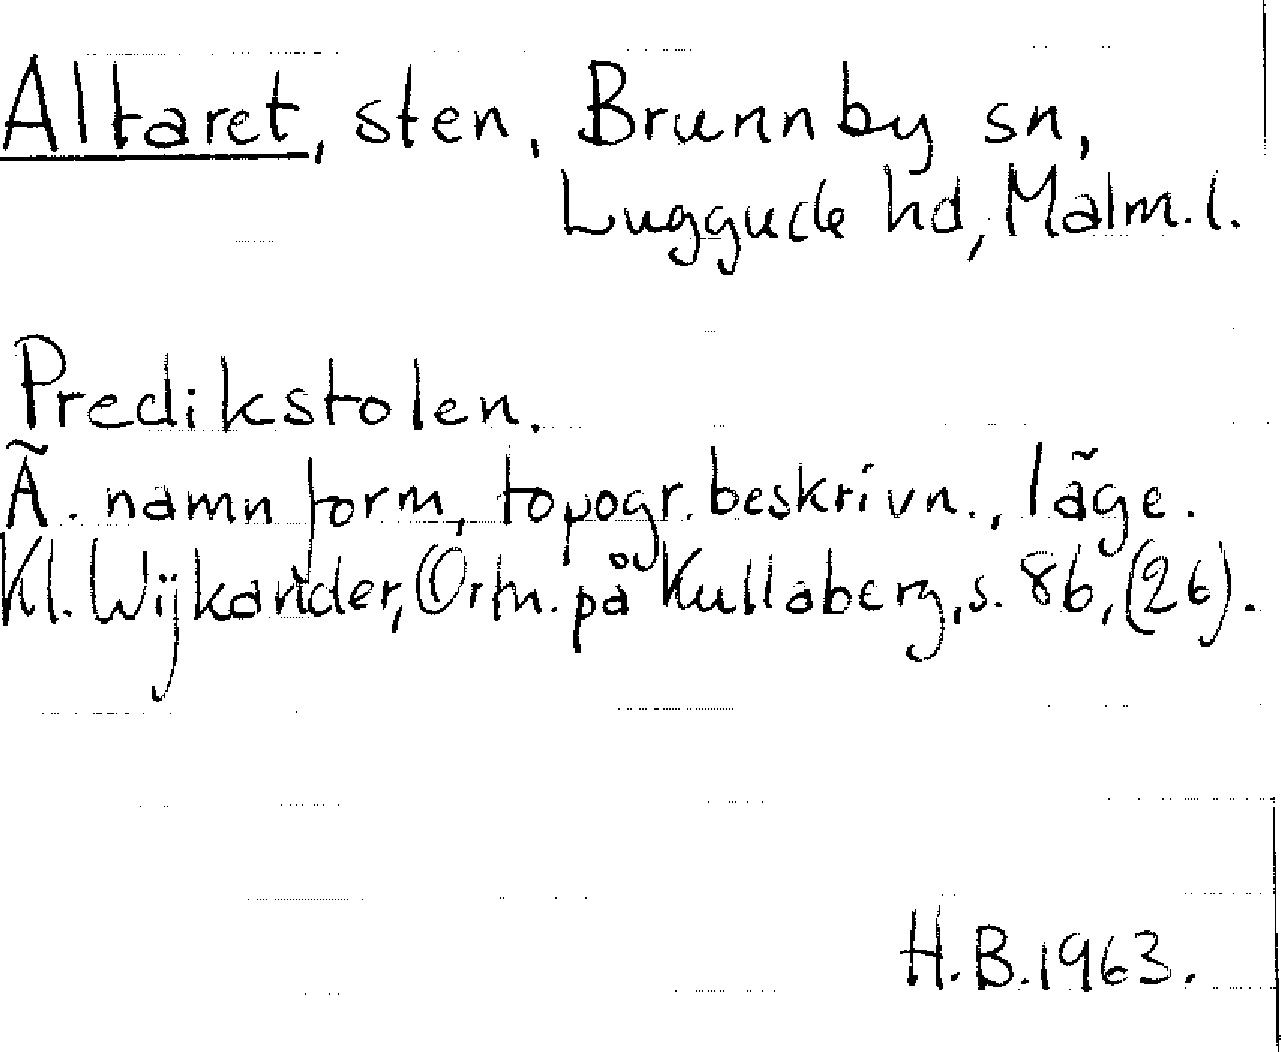 Altaret, sten, Brunnby sn,
Luggude hd, Malm. l.
Predikstolen.
Ä. namnform, topogr. beskrivn., läge.
Kl. Wijkander, Ortn. på Kullaberg, s. 86, (26).
H.B. 1963.